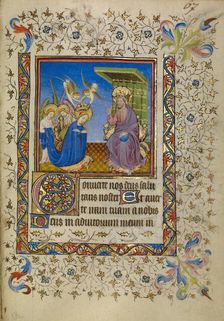 Converte nos deus salu
taris noster Et aver
te iram tuam a nobis
Deus in adiutorium meum in